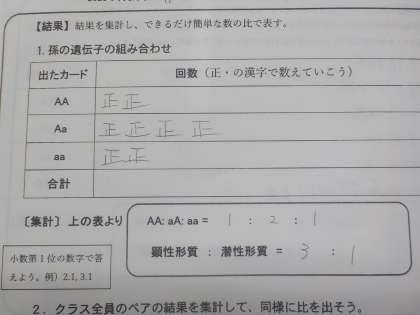 【結果】結果を集計し、できるだけ簡単な数の比で表す。
1. 孫の遺伝子の組み合わせ
出たカード 回数（正・の漢字で数えていこう）
AA 正 正
Aa 正 正 正 正
aa 正 正
合計
〔集計〕上の表より
AA: aA: aa = 1 : 2 : 1
顕性形質 : 潜性形質 = 3 : 1
小数第1位の数字で答
えよう。例）2:1, 3.1
2．クラス全員のペアの結果を集計して、同様に比を出そう。